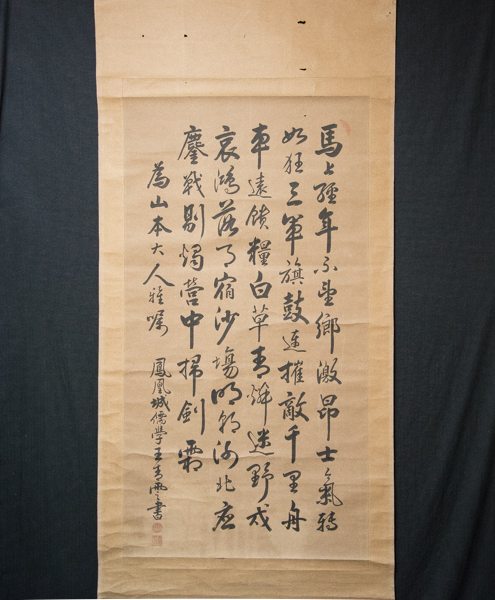 馬上經年不望鄉激昂士氣轉
如狂三軍旗鼓連摧敵千里舟
車遠饋糧白草青燐迷野戍
哀鴻落月宿沙場明朝河北應
鏖戰剔燭營中掃劍霜
為山本大人雅囑
鳳凰城儒學王青雲書